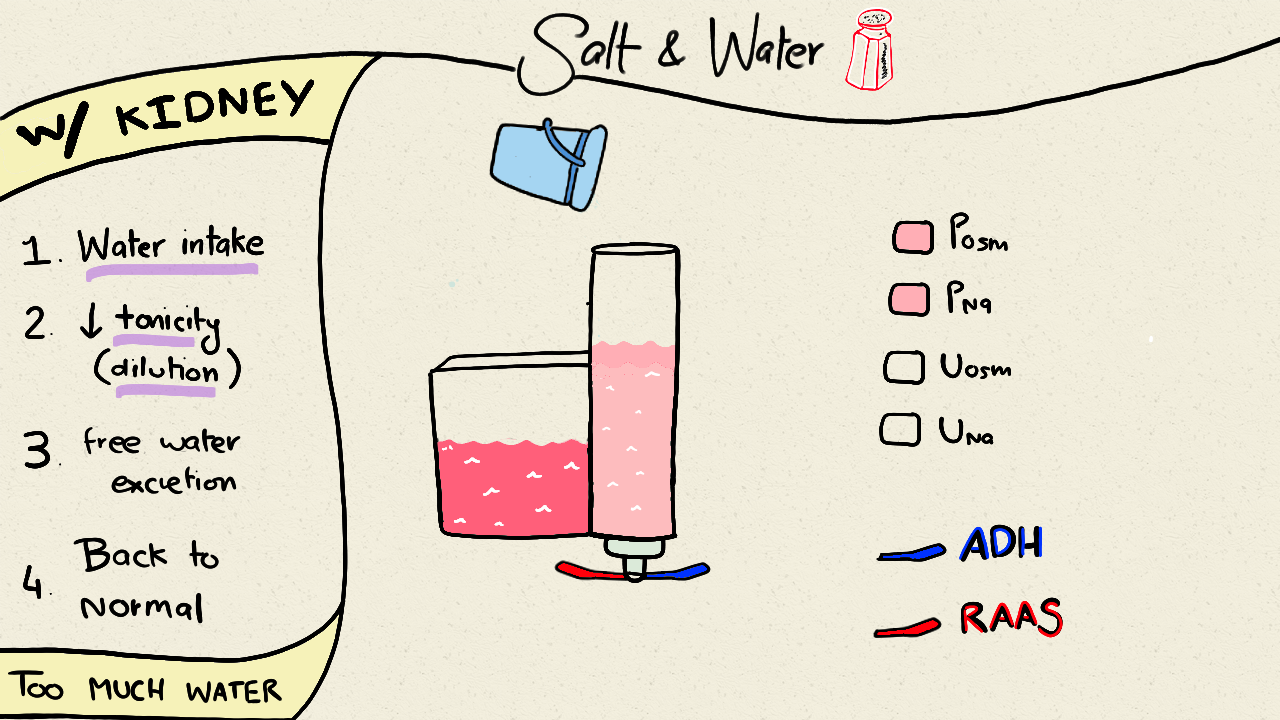 Salt & Water
W/ KIDNEY
1. Water intake
2. ↓ tonicity
(dilution)
3. free water
excretion
4. Back to
normal
TOO MUCH WATER
Posm
PNa
Uosm
UNa
ADH
RAAS